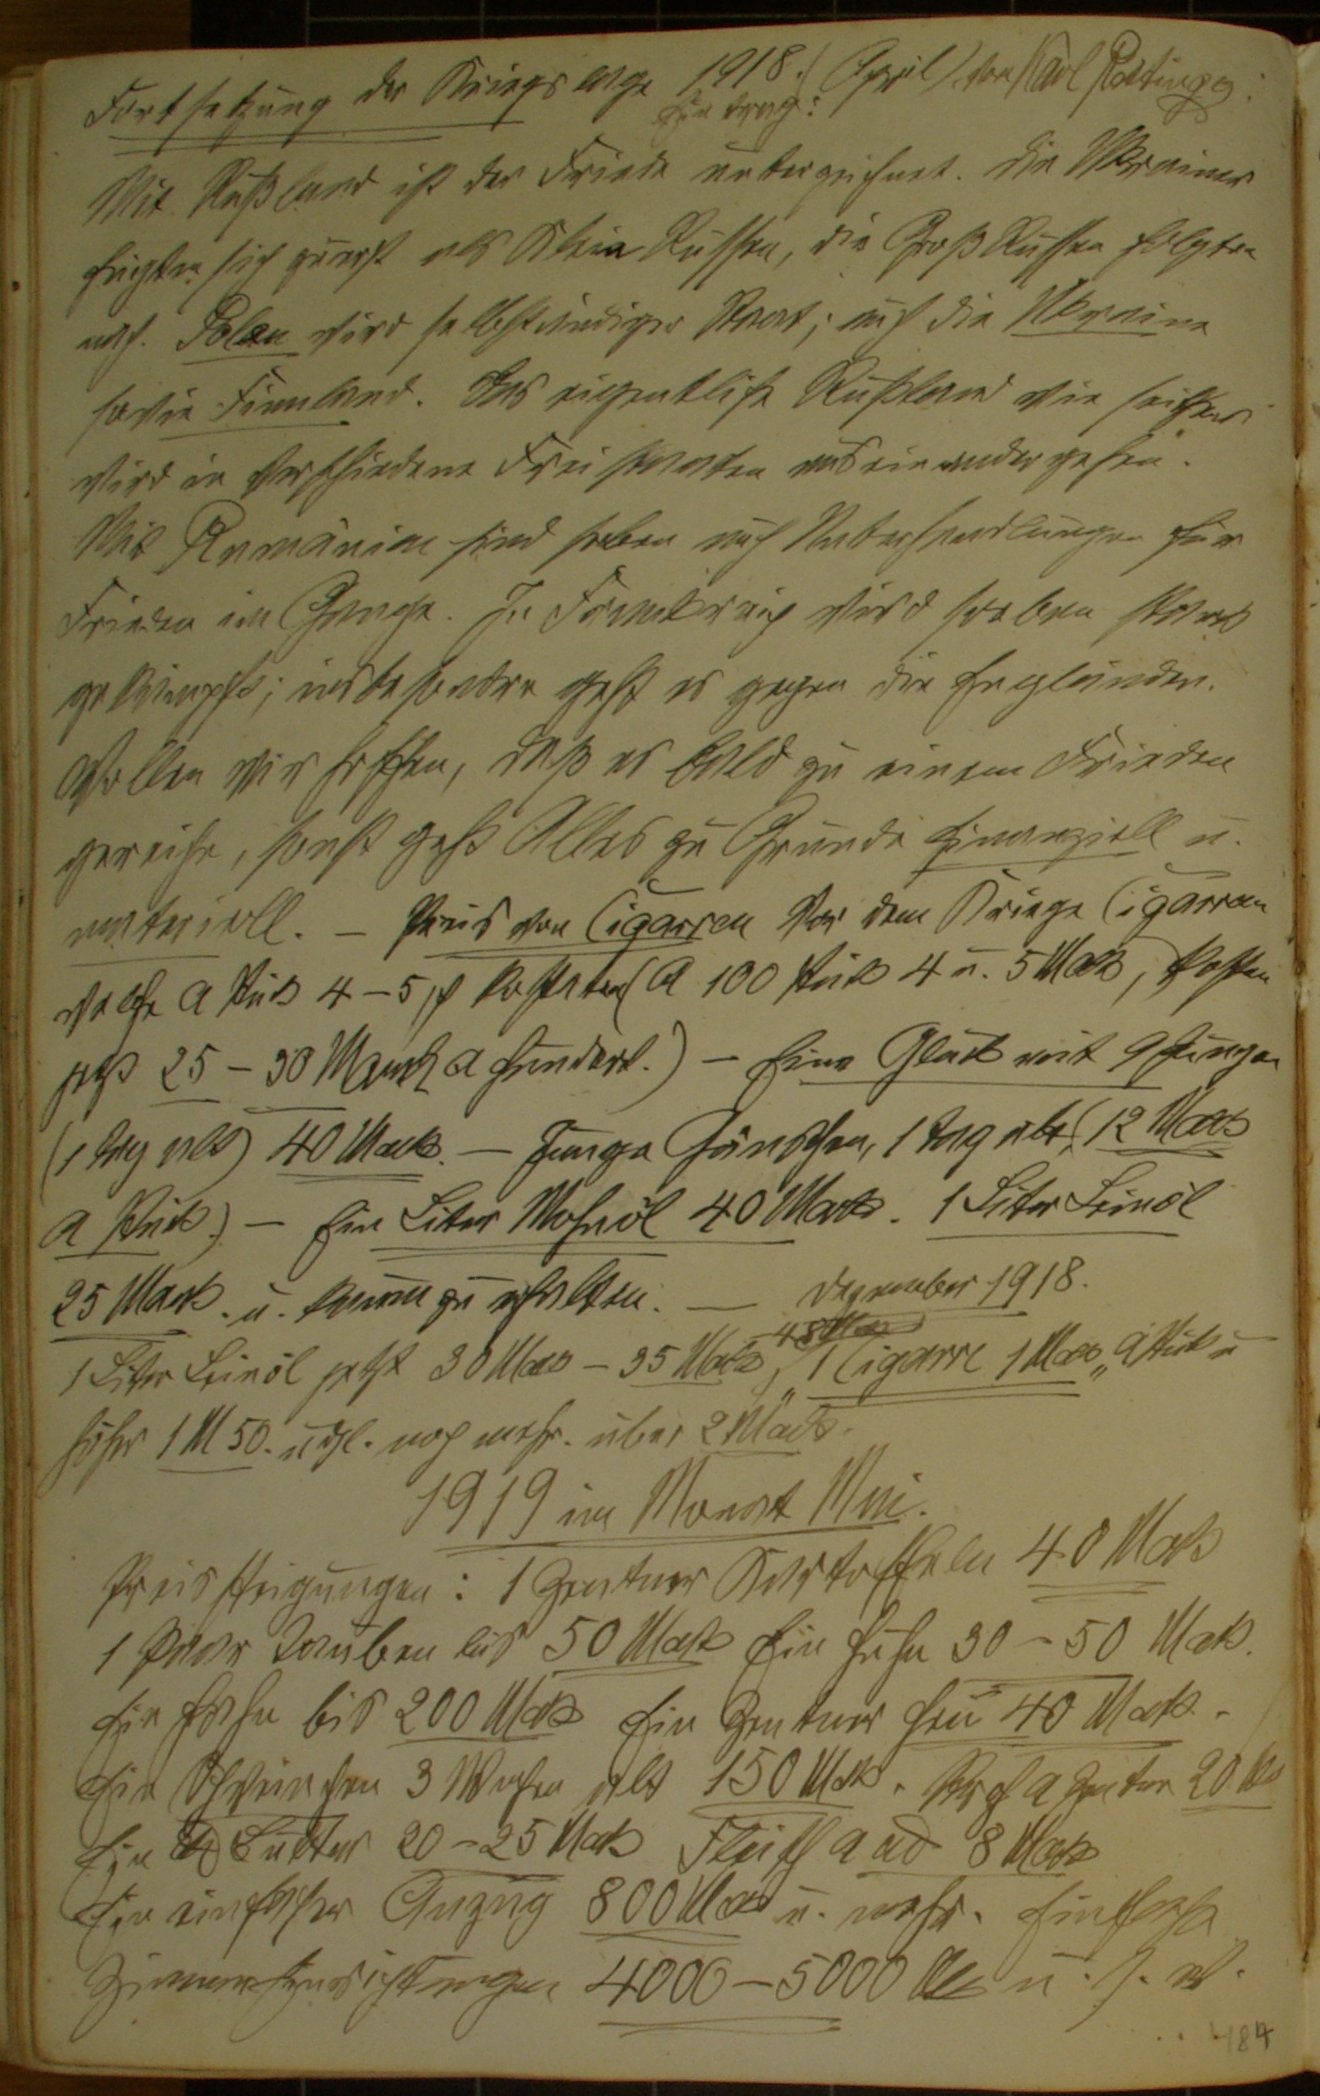 Fortsetzung der Kriegslage 1918. (April) von Karl
Eintrag:
Mit Rußland ist der Friede unterzeichnet. Die Ukrainer
fügten sich zuerst als Klein Russen, die Groß Russen folgten
nach. Polen wird selbständiger Staat; auch die Ukraine
sowie Finnland. Das eigentliche Rußland wie seither
wird in verschiedene Freistaaten auseinandergehen.
Mit Rumänien sind soeben auch Unterhandlungen für
Frieden im Gange. In Frankreich wird soeben stark
gekämpft; insbesondere geht es gegen die Engländer.
Wollen wir hoffen, daß es bald zu einem Frieden
gereiche, sonst geht Alles zu Grunde finanziell u.
materiell. – Preis von Cigarren Vor dem Kriege Cigarren
welche a Stück 4–5 ₰ kosteten (a 100 Stück 4 u. 5 Mark, kosten
jetzt 25 – 30 Mark a hundert.) – Eine Gluck mit 9 Jungen
(1 Tag alt) 40 Mark. – Junge Gänschen, 1 Tag alt, (12 Mark
a Stück.) – Ein Liter Mohnöl 40 Mark. 1 Liter Leinöl
25 Mark. u. kaum zu erhalten. — Dezember 1918.
1 Liter Leinöl jetzt 30 Mark – 35 Mark, 1 Cigarre 1 Mark, a Stück u
höher 1 M 50. u dgl. noch mehr. über 2 Mark.
1919 im Monat Mai.
Preissteigungen: 1 Zentner Kartoffeln 40 Mark
1 Paar Tauben bis 50 Mark Ein Huhn 30 – 50 Mark.
Ein Hahn bis 200 Mark Ein Zentner Heu 40 Mark.
Ein Schweinchen 3 Wochen alt 150 Mark. Stroh a Zentner 20 M
Ein ℔ Butter 20 – 25 Mark Fleisch a ℔ 8 Mark
Ein einfacher Anzug 800 Mark u. mehr. Einfache
Zimmereinrichtungen 4000 – 5000 M u. s. w.
184